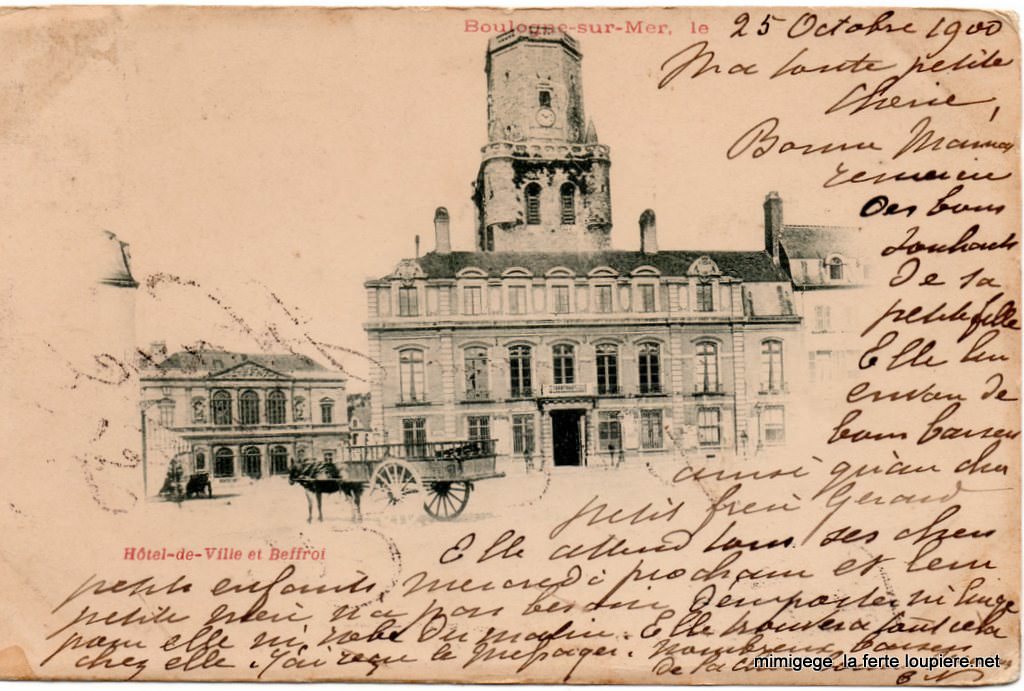 Boulogne-sur-Mer, le 25 Octobre 1900
Ma toute petite
Cherie,
Bonne Maman
remercie
des bons
souhaits
de sa
petite fille
Elle lui
envoi de
bons baisers
ainsi qu'au cher
petit frère Gérard
Elle attend tous ses chers
petits enfants mercredi prochain et leur
petite mère n'a pas besoin d'emporter ni linge
pour elle ni robe du matin. Elle trouvera tout cela
chez elle. J'ai reçu le Messager. Nombreux baisers
de la
Hôtel-de-Ville et Beffroi
mimigege la ferte loupiere.net